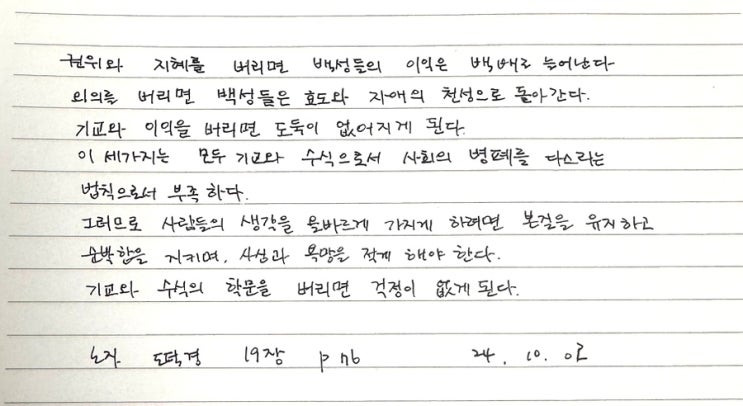 권위와 지혜를 버리면 백성들의 이익은 백배로 늘어난다
버리면 백성들은 효도와 자애의 천성으로 돌아간다.
기교와 이익을 버리면 도둑이 없어지게 된다.
이 세가지는 모두 기교와 수식으로서 사회의 병폐를 다스리는
법칙으로서 부족하다.
그러므로 사람들의 생각을 올바르게 가지게 하려면 본질을 유지하고
순박함을 지키며, 사심과 욕망을 적게 해야 한다.
기교와 수식의 학문을 버리면 걱정이 없게 된다.
노자 도덕경 19장 24. 10.